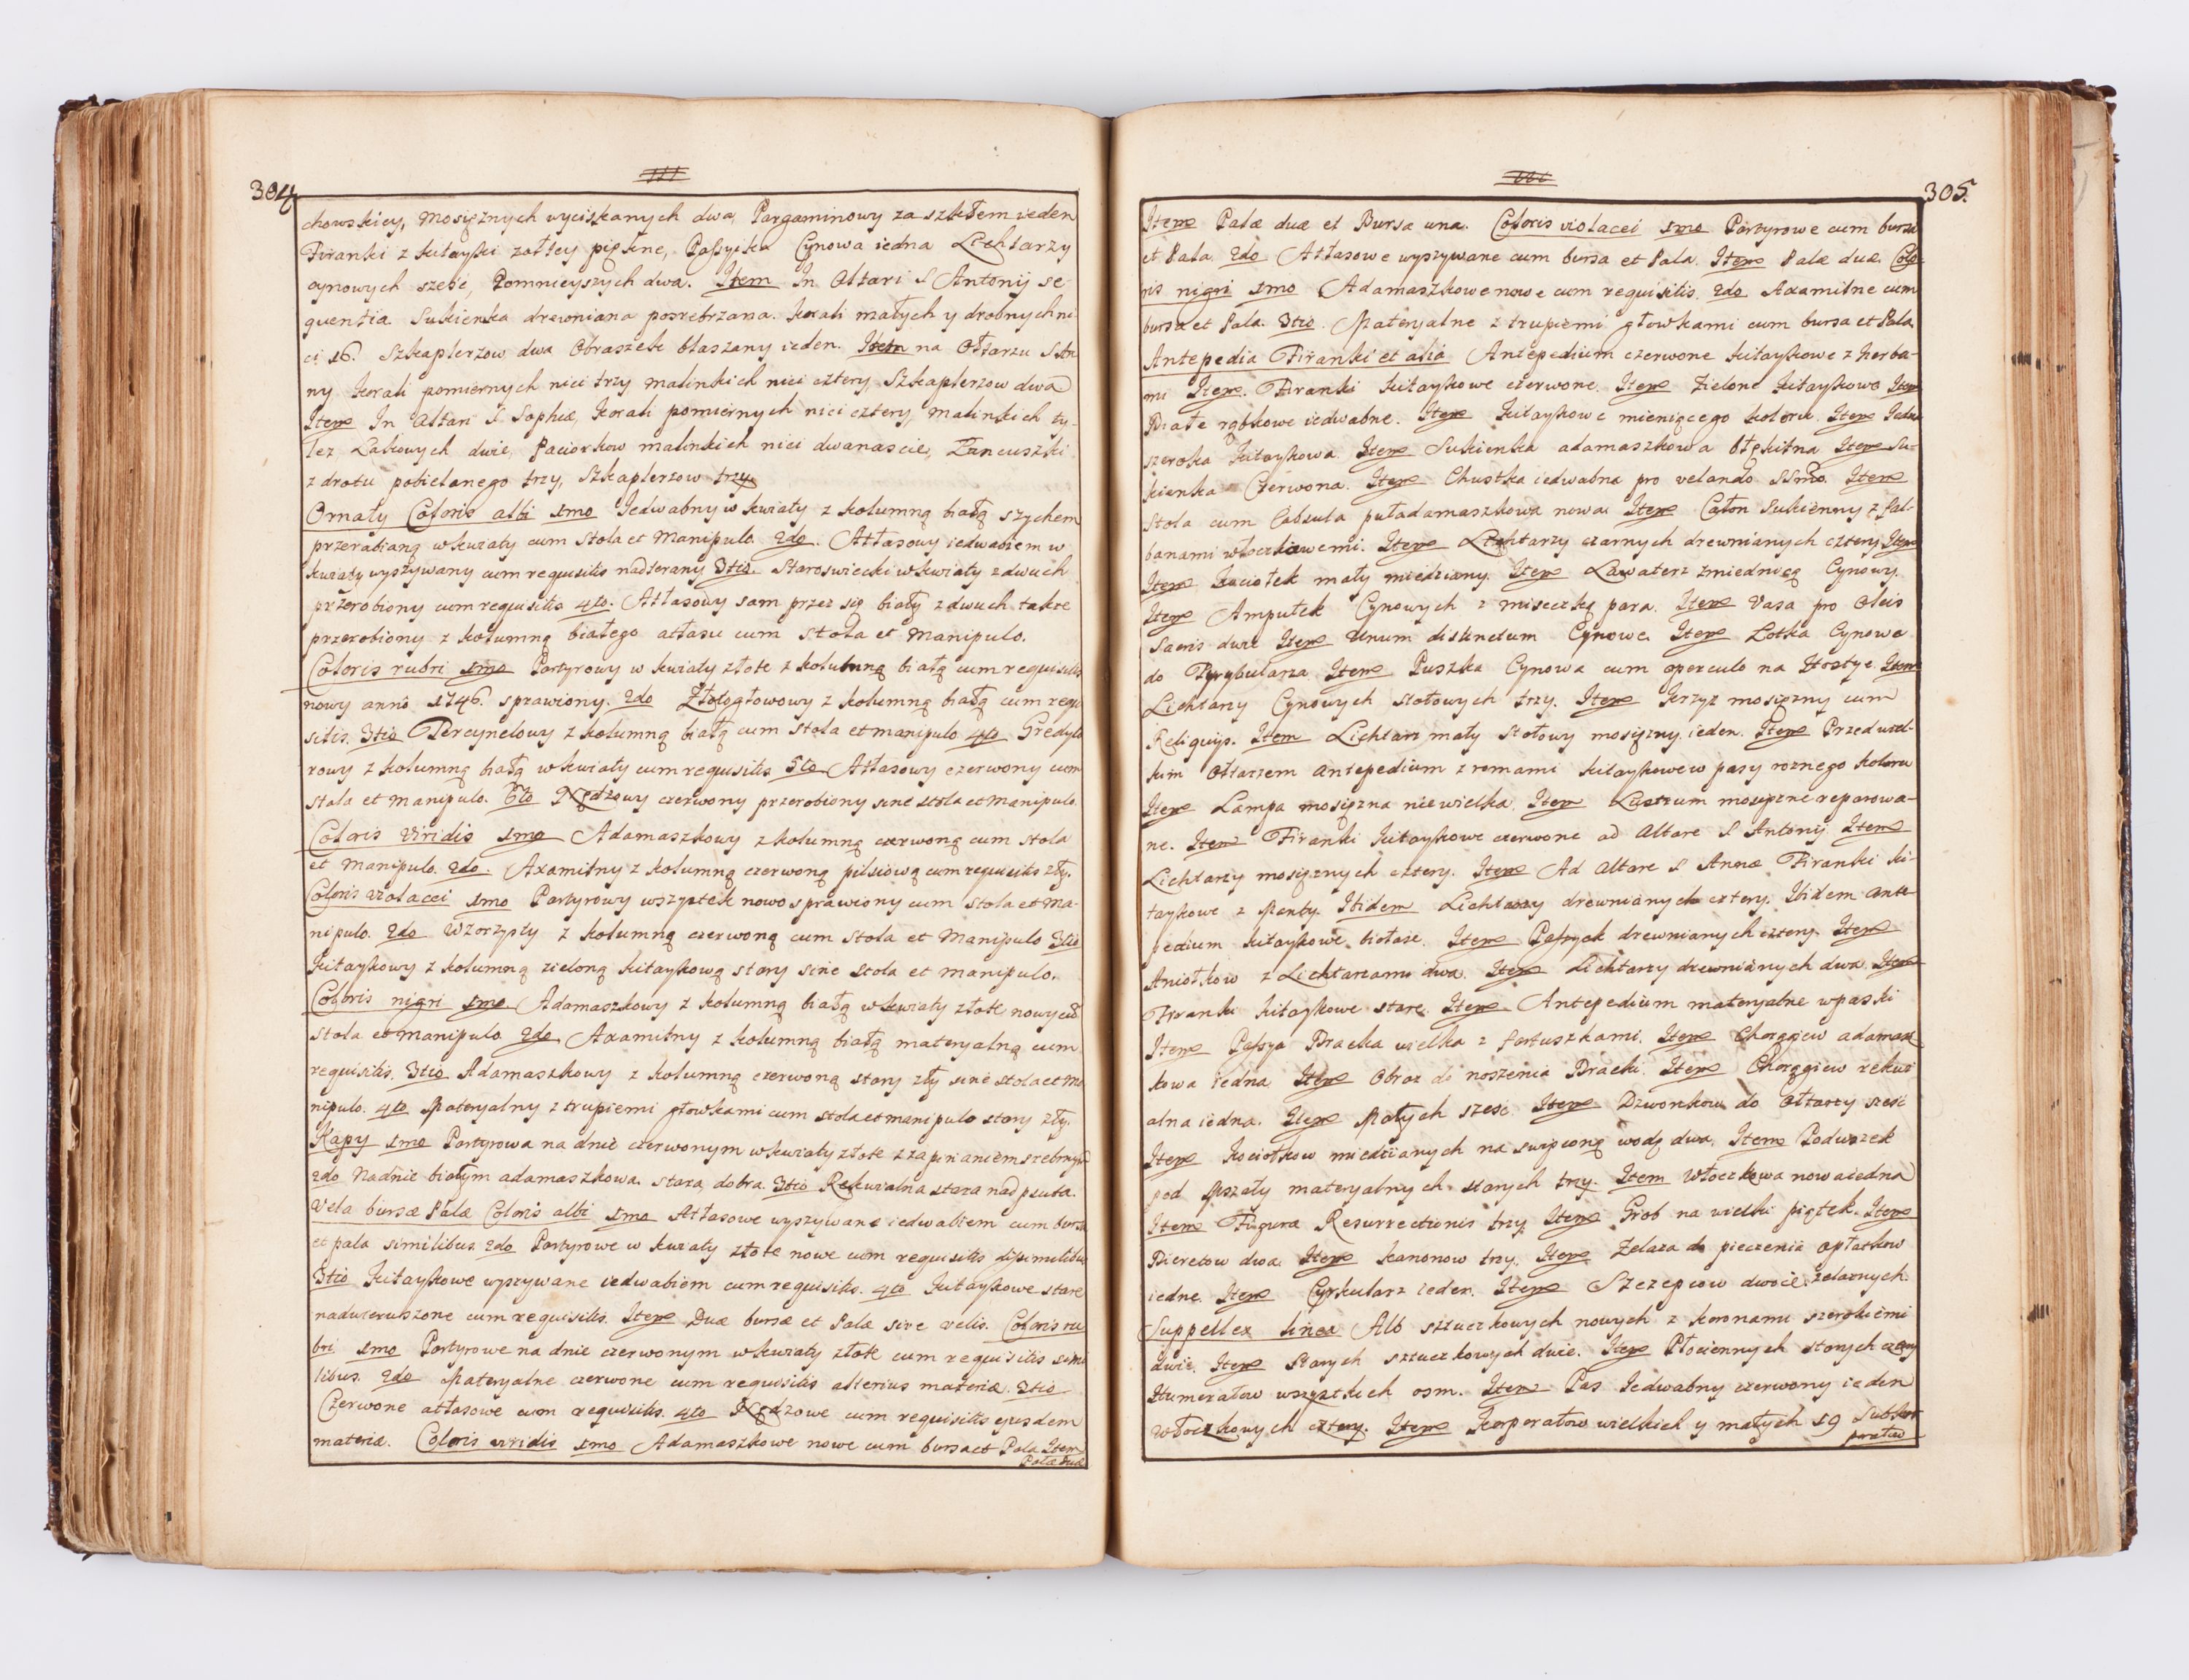 304
chowskiey, Mosiężnych wyciskanych dwa, Pargaminowy za szkłem ieden
Firanki z kitayki żałtey piękne, Passyika Cynowa iedna Lichtarzy
cynowych szesc, Pomnieyszych dwa. Item In Altari S Antonij se
quentia Sukienka drewniana posrebrzana. Korali małych y drobnych ni
ci 16. Szkaplerzow dwa Obraszek blaszany ieden. Item na Ołtarzu S An
ny Korali pomiernych nici trzy malinkich nici cztery Szkaplerzow dwa
Item In Altari S. Sophiæ, Korali pomiernych nici cztery, malinkich ty-
lez Lakowych dwie, Paciorkow malinkich nici dwanascie, Łancuszki
z drotu pobielanego trzy, Szkaplerzow trzy
Ornaty Coloris albi 1mo Jedwabny w kwiaty z kolumną białą szychem
przerabianą w kwiaty cum Stola et Manipulo. 2do. Atłasowy iedwabiem w
kwiaty wyszywany cum requisitis nadterany 3tio. Staroswiecki w kwiaty z dwuch
przerobiony cum requisitis 4to. Atłasowy sam przez się biały z dwuch takze
przerobiony z kolumną białego atłasu cum Stola et Manipulo.
Coloris rubri 1mo Portyrowy w kwiaty złote z kolumną białą cum requisitis
nowy anno 1746. sprawiony. 2do Złotogłowowy z kolumną białą cum requi
sitis. 3tio Percynelowy z kolumną białą cum Stola et manipulo 4to Gredytu
rowy z kolumną białą w kwiaty cum requisitis 5to Atłasowy czerwony cum
stola et Manipulo. 6to Nędzowy czerwony przerobiony sine stola et Manipulo.
Coloris Viridis 1mo Adamaszkowy z kolumną czerwoną cum stola
et Manipulo. 2do. Axamitny z kolumną czerwoną pilsiową cum requisitis zły.
Coloris violacei 1mo Portyrowy wszystek nowo sprawiony cum Stola et Ma-
nipulo. 2do Wzorzysty z kolumną czerwoną cum Stola et Manipulo 3tio
Kitaykowy z kolumną zieloną kitaykową stary sine Stola et Manipulo.
Coloris nigri 1mo Adamaszkowy z kolumną białą w kwiaty złote nowy cũ
stola et Manipulo 2do Axamitny z kolumną białą materyalną cum
requisitis. 3tio Adamaszkowy z kolumną czerwoną stary zły sine stola et Ma
nipulo. 4to Materyalny z trupiemi głowkami cum stola et manipulo stary zły.
Kapy 1mo Portyrowa na dnie czerwonym w kwiaty złote z zapinaniem srebrnym
2do Na dnie białym adamaszkowa stara, dobra. 3tio Rekwialna stara nadpsuta.
Vela bursæ Palæ Coloris albi 1mo Atłasowe wyszywane iedwabiem cum bursa
et pala similibus. 2do Portyrowe w kwiaty złote nowe cum requisitis dissimilibus
3tio Kitaykowe wyszywane iedwabiem cum requisitis. 4to Kitaykowe stare
nadwieruszone cum requisitis. Item Duæ bursæ et Palæ sive velis. Coloris ru
bri 1mo Portyrowe na dnie czerwonym w kwiaty złote cum requisitis simi
libus. 2do Materyalne czerwone cum requisitis alterius materiæ. 3tio
Czerwone atłasowe cum requisitis. 4to Nędzowe cum requisitis ejusdem
materiæ. Coloris viridis 1mo Adamaszkowe nowe cum bursa et Pala Item
Palæ duæ
305.
Item Palæ duæ et Bursa una. Coloris violacei 1mo Portyrowe cum bursa
et Pala 2do Atłasowe wyszywane cum bursa et Pala. Item Palæ duæ. Colo-
ris nigri 1mo Adamaszkowe nowe cum requisitis. 2do Axamitne cum
bursa et Pala. 3tio. Materyalne z trupiemi głowkami cum bursa et Pala
Antepedia Firanki et alia Antepedium czerwone kitaykowe z herba-
mi Item. Firanki kitaykowe czerwone. Item Zielone kitaykowe Item
Białe rąbkowe iedwabne. Item Kitaykowe mieniącego koloru. Item Iedna
szeroka kitaykowa. Item Sukienka adamaszkowa błękitna. Item Su-
kienka Czerwona. Item Chustka iedwabna pro velando SSmo. Item
Stola cum Capsula puładamaszkowa nowa. Item Całon Sukienny z fal-
banami włoczkowemi. Item Lichtarzy czarnych drewnianych cztery Item
Item Kociołek mały miedziany. Item Lawaterz z miednicą Cynowy.
Item Ampułek Cynowych z miseczką para. Item Vasa pro Oleis
Sacris duæ Item Unum distinctum Cynowe. Item Lotka Cynowa
do Trybularza Item Puszka Cynowa cum operculo na Hostye. Item
Lichtarzy Cynowych stołowych trzy. Item Krzyz mosiężny cum
Reliquijs. Item Lichtarz mały Stołowy mosiężny ieden. Item Przed wiel-
kim Ołtarzem antepedium z romami kitaykowe w pasy roznego koloru
Item Lampa mosiężna niewielka. Item Lustrum mosiężne reparowa-
ne. Item Firanki kitaykowe czerwone ad Altare S Antonij Item
Lichtarzy mosiężnych cztery. Item Ad Altare S Annæ Firanki ki-
taykowe z Menty. Ibidem Lichtarzy drewnianych cztery. Ibidem ante
pedium kitaykowe biołaie. Item Passyek drewnianych cztery. Item
Aniołkow z Lichtarzami dwa. Item Lichtarzy drewnianych dwa. Item
Firanki kitaykowe stare. Item Antepedium materyalne w paski
Item Passya Bracka wielka z fortuszkami. Item Chorągiew adamasz
kowa iedna Item Obraz do noszenia Bracki. Item Chorągiew rekwi
alna iedna. Item Małych szesc. Item Dzwonkow do Ołtarzy szesc
Item Kociołkow miedzianych na swięconą wodę dwa. Item Poduszek
pod Mszały materyalnych starych trzy. Item Włoczkowa nowa iedna
Item Figura Resurrectionis trzy Item Grob na wielki piątek. Item
Bieretow dwa Item Kanonow trzy. Item Zelaza do pieczenia opłatkow
iedne. Item Cyrkularz ieden. Item Szczepcow dwoie żelaznych.
Suppellex linea Alb sztuczkowych nowych z koronami szerokiemi
dwie. Item Starych sztuczkowych dwie. Item Płociennych starych cztery
Humerałow wszystkich osm. Item Pas Jedwabny czerwony ieden
Włoczkowych cztery. Item Korporałow wielkich y małych 19 Subkor
porałow